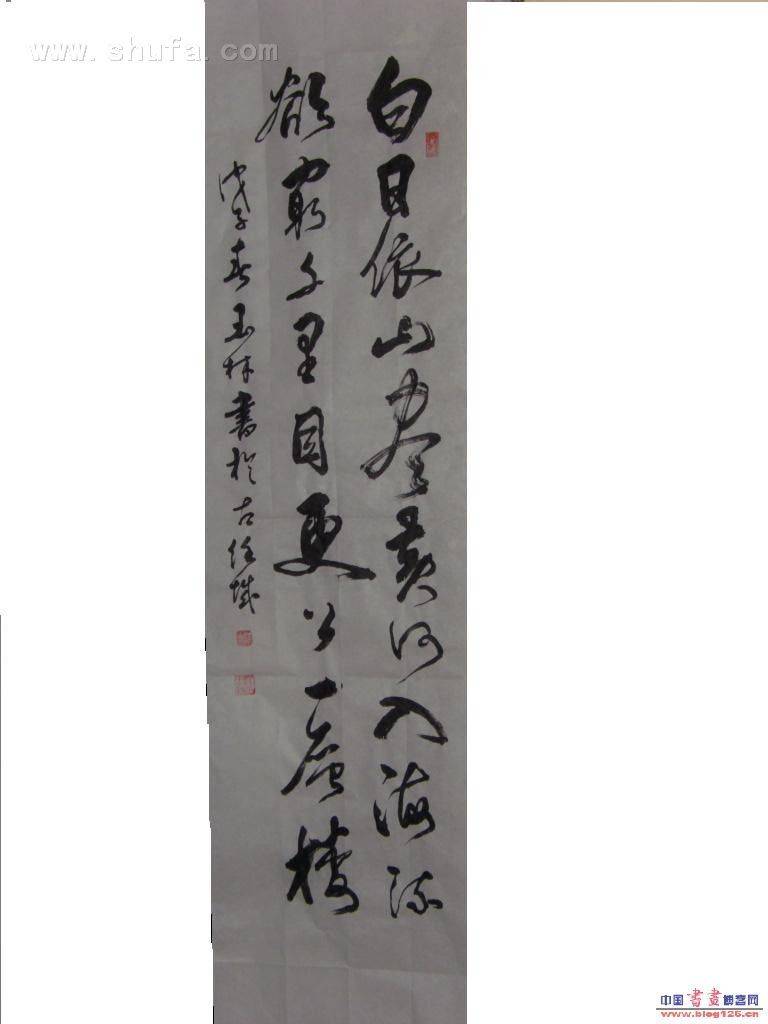 www.shufa.com
白日依山盡黄河入海流
欲窮千里目更上一層樓
戊子春玉林書於古任城
中国書畫博客网
www.blog126.cn